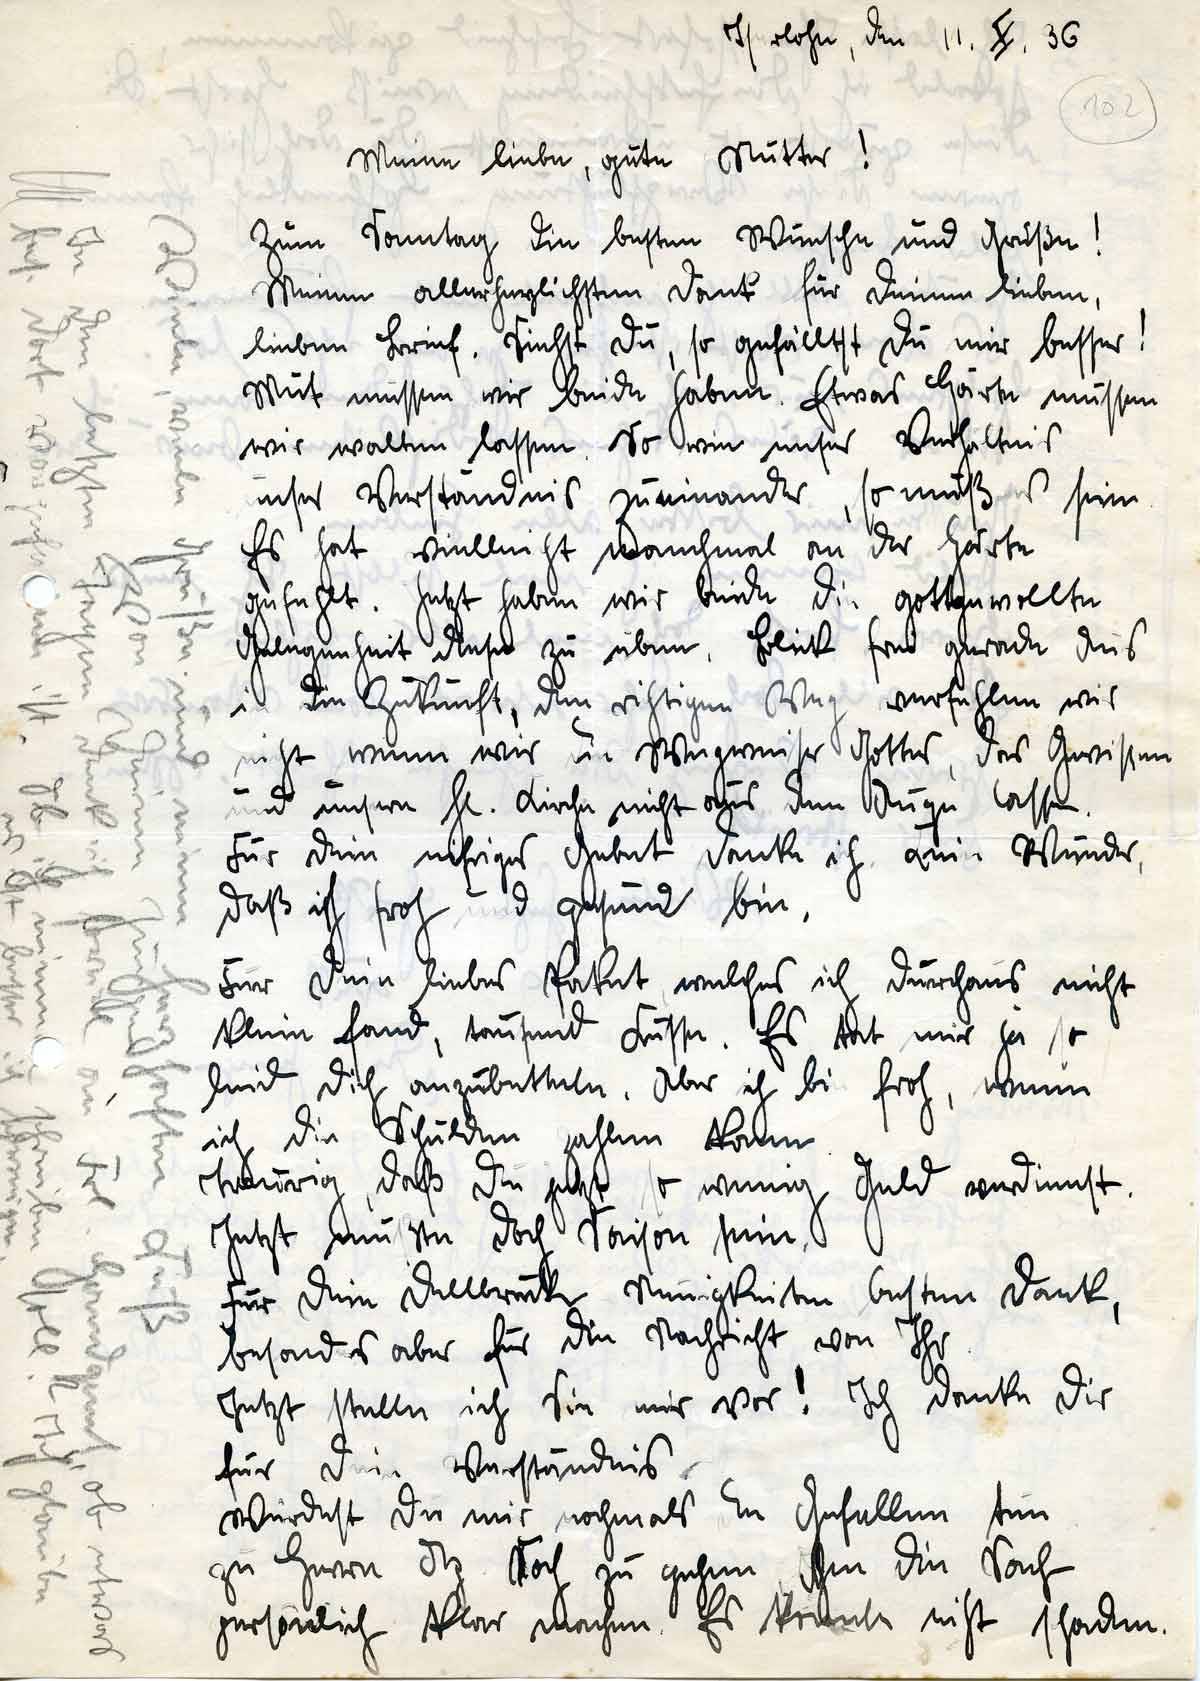 Iserlohn, den 11. X. 36
102
Meine liebe, gute Mutter!
Zum Sonntag die besten Wünsche und Grüße!
Meinen allerherzlichsten Dank für Deinen lieben,
lieben Brief. Siehst Du, so gefällst Du mir besser!
Mut müssen wir beide haben. Etwas Härte müssen
wir walten lassen. So wie unser Verhältnis
unser Verständnis zueinander, so muß es sein.
Es hat vielleicht manchmal an der Härte
gefehlt. Jetzt haben wir beide die gottgewollte
Gelegenheit diese zu üben. Blick frei gerade aus
in die Zukunft, den richtigen Weg verfehlen wir
nicht wenn wir die Wegweiser Gottes, das Gewissen
und unsere hl. Kirche nicht aus dem Auge lassen.
Für Dein eifriges Gebet danke ich. Kein Wunder,
daß ich froh und gesund bin.
Für Dein liebes Paket, welches ich durchaus nicht
klein fand, tausend Küsse. Es tat mir ja so
leid Dich anzubetteln. Aber ich bin froh, wenn
ich die Schulden zahlen kann.
Traurig, daß Du jetzt so wenig Geld verdienst.
Jetzt müßte doch Saison sein.
Für Deine Dellbrücker Neuigkeiten besten Dank,
besonders aber für die Nachricht von Ihr.
Jetzt stelle ich Sie mir vor! Ich danke Dir
für Dein Verständnis.
Würdest Du mir nochmals den Gefallen tun
zu Herrn Koch zu gehen ihm die Sach
persönlich klar machen. Es könnte nicht schaden.
Viele, viele Grüße und einen herzhaften Kuß
von Deinem
In den letzten Tagen dank ich heute an Frl. ob etwas
dort vorgefallen ist. Ob ich einmal schreiben soll? Ich glaube
es ist besser ich schweige.